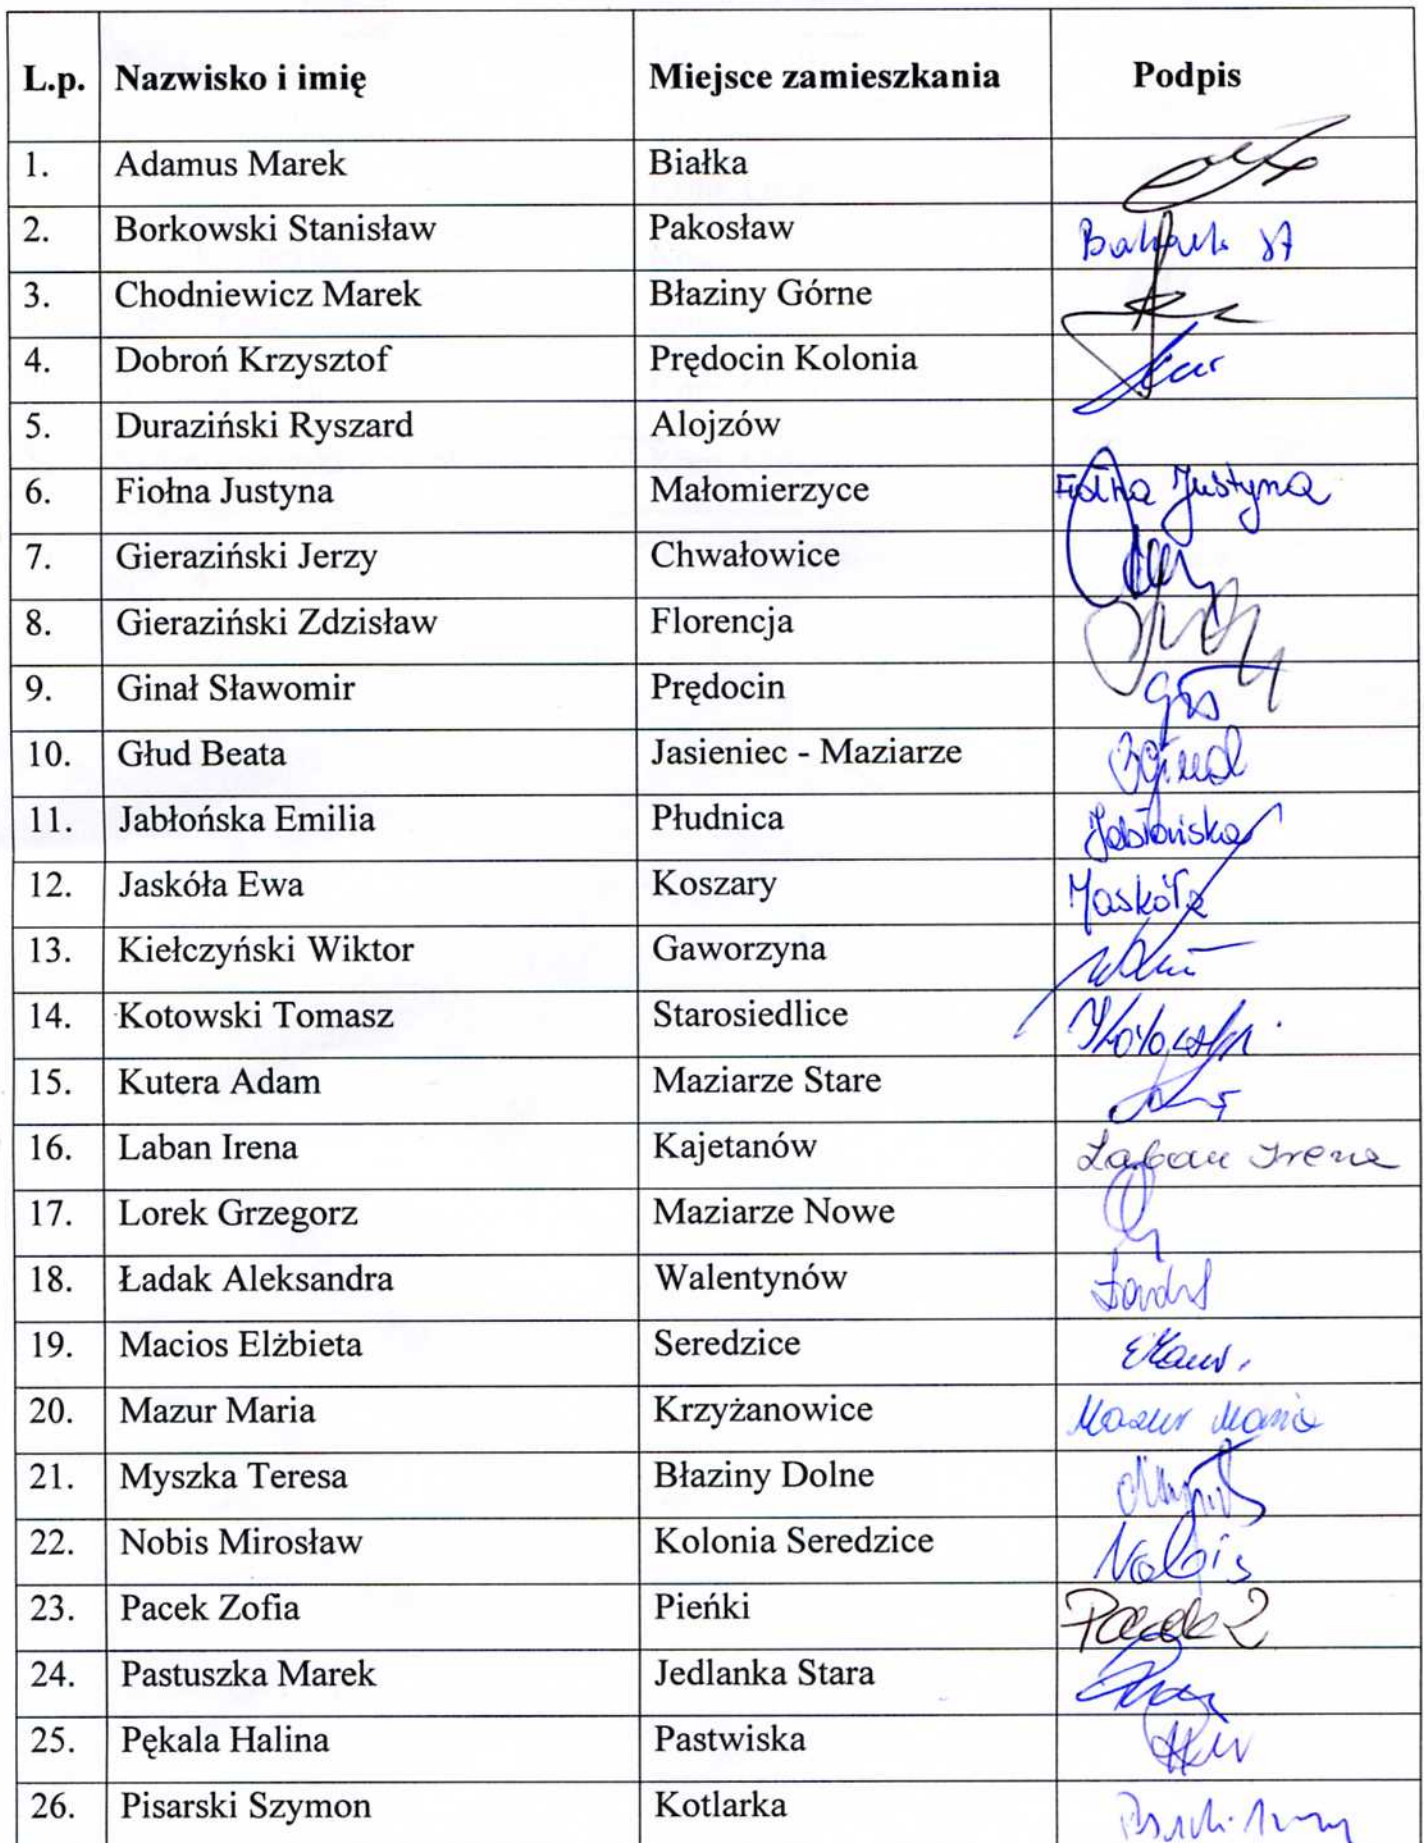 L.p. Nazwisko i imię Miejsce zamieszkania Podpis
1. Adamus Marek Białka
2. Borkowski Stanisław Pakosław
3. Chodniewicz Marek Błaziny Górne
4. Dobroń Krzysztof Prędocin Kolonia
5. Duraziński Ryszard Alojzów
6. Fiołna Justyna Małomierzyce Fiołna Justyna
7. Gieraziński Jerzy Chwałowice
8. Gieraziński Zdzisław Florencja
9. Ginał Sławomir Prędocin
10. Głud Beata Jasieniec - Maziarze
11. Jabłońska Emilia Płudnica Jabłońska
12. Jaskóła Ewa Koszary Jaskóła
13. Kiełczyński Wiktor Gaworzyna
14. Kotowski Tomasz Starosiedlice
15. Kutera Adam Maziarze Stare
16. Laban Irena Kajetanów Laban Irena
17. Lorek Grzegorz Maziarze Nowe
18. Ładak Aleksandra Walentynów
19. Macios Elżbieta Seredzice
20. Mazur Maria Krzyżanowice Mazur Maria
21. Myszka Teresa Błaziny Dolne
22. Nobis Mirosław Kolonia Seredzice Nobis
23. Pacek Zofia Pieńki Pacek Z
24. Pastuszka Marek Jedlanka Stara
25. Pękala Halina Pastwiska
26. Pisarski Szymon Kotlarka